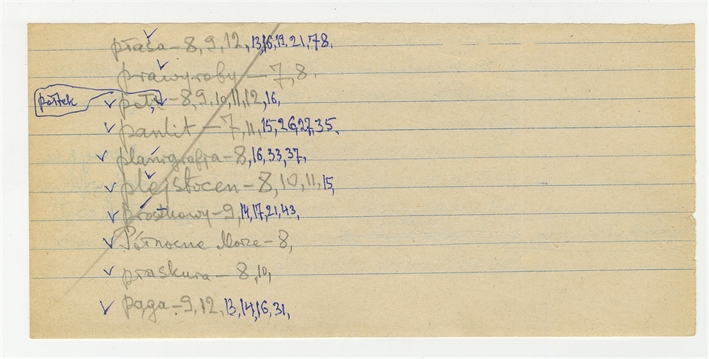 płasa – 8, 9, 12, 13, 16, 19, 21, 78.
prawyroby – 7, 8.
połtek
połt, – 8, 9, 10, 11, 12, 16,
pantit – 7, 11, 15, 26, 27, 35.
planigrafja – 8, 16, 33, 37,
plejstocen – 8, 10, 11, 15,
prostkowy – 9, 14, 17, 21, 43,
Północne Morze – 8,
praskura – 8, 10,
paga – 9, 12, 13, 14, 16, 31,